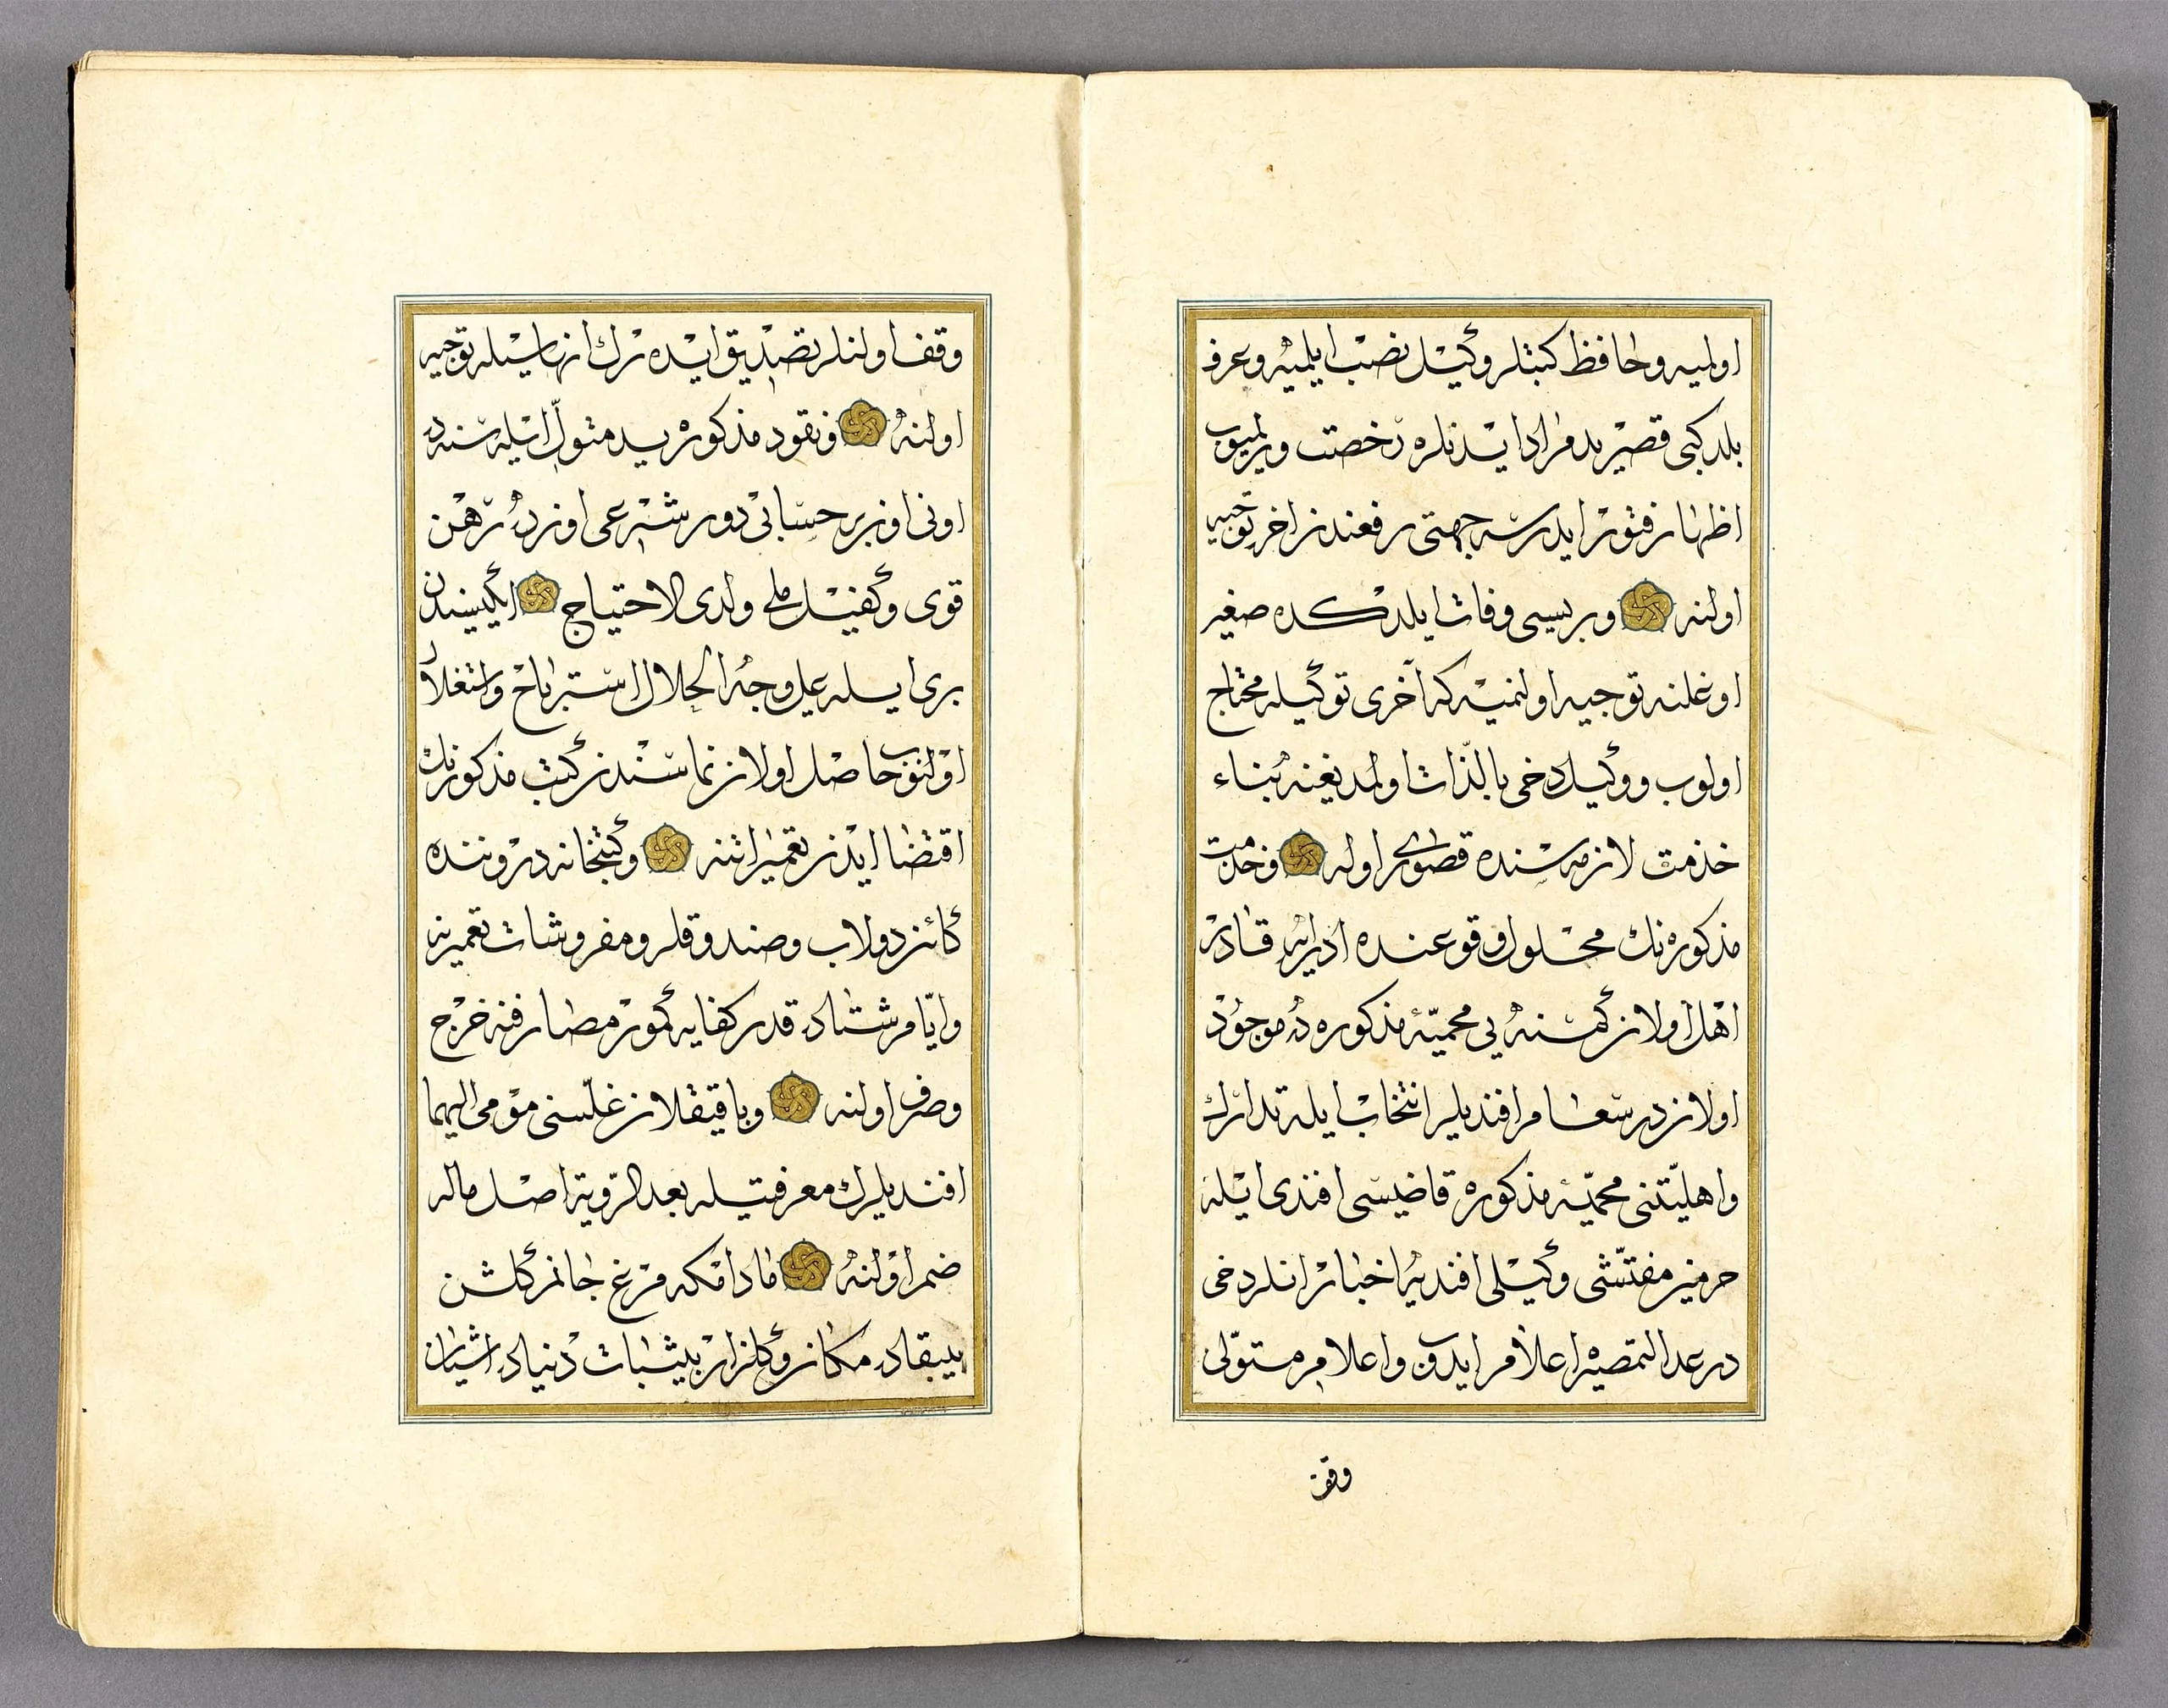 اولميه وحافظ كتبلر وكيل نصب ايلميه وعرف
بلد كبى قصر يد مراد ايدنلره رخصت ويرلميوب
اظهار فتور ايدرسه جهتى رفعندن اخره توجيه
اولنه وبريسى وفات ايلدكده صغير
اوغلنه توجيه اولنميه كه آخرى توكيله محتاج
اولوب ووكيل دخى بالذات اولمديغنه بناء
خدمت لازمه سنده قصورى اوله وخدمت
مذكوره نك محلول وقوعنده اداسنه قادر
اهل اولان كمسنه يى محميۀ مذكوره ده موجود
اولان درسعام افنديلر انتخاب ايله تدارك
واهليتنى محميۀ مذكوره قاضيسى افندى ايله
حرمين مفتشى وكيلى افنديه اخبار انلر دخى
در عدالتمصيره اعلام ايدوب واعلام متولى
وقف
وقف اولنلر تصديق ايده رك انهاسيله توجيه
اولنه ونقود مذكوره يد متولى ايله سنه ده
اونى اون بر حسابى دور شرعى اوزره رهن
قوى وكفيل ملى ولدى الاحتياج ايكيسندن
برى ايله على وجه الحلال استرباح واستغلال
اولنوب حاصل اولان نماسندن كتب مذكورنك
اقتضا ايدن تعميراتنه وكتبخانه دروننده
كائن دولاب وصندوقلر ومفروشات تعميرينه
وايام شتاده قدر كفايه كمور مصارفنه خرج
وصرف اولنه وباقيقلان غلّه سنى مومى اليهما
افنديلرك معرفتيله بعد الرؤية اصل ماله
ضم اولنه مادامكه مرغ جانم كلشن
بيبقاده مكان وكلزار بيثبات دنياده اشيان